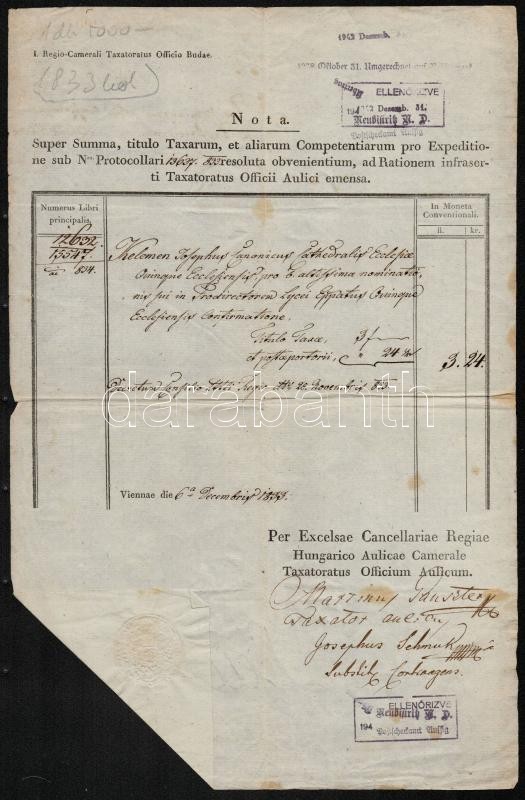 1 db 5000 —
I. Regio-Camerali Taxatoratus Officio Budae.
1833 ből
1942 Dezemb.
1938 Oktober 31. Umgerechnet auf
ELLENŐRIZVE
194 Dezemb. 31.
Neubistritz M. D.
Postscheckamt Aussig
Nota.
Super Summa, titulo Taxarum, et aliarum Competentiarum pro Expeditio-
ne sub Nro Protocollari 13637 833 resoluta obvenientium, ad Rationem infraser-
ti Taxatoratus Officii Aulici emensa.
Numerus Libri
principalis.
In Moneta
Conventionali.
fl. kr.
12632
15547
834.
Kelemen Josephus Canonicus Cathedralis Ecclesiae
Quinque Ecclesiensis pro b. altissima nominatio-
nis in Prodirectorem Lycei Eppatus Quinque
Ecclesiensis Confirmatione.
Titulo Taxae, 3 f
et postaportorii, " 24
3. 24.
Novembris 833.
Viennae die 6a Decembris 1833.
Per Excelsae Cancellariae Regiae
Hungarico Aulicae Camerale
Taxatoratus Officium Aulicum.
Martinus
Taxator aulicus
Josephus Schmuk
Substit. Contraagens.
ELLENŐRIZVE
Neubistritz M. D.
194
Postscheckamt Aussig
Darabanth